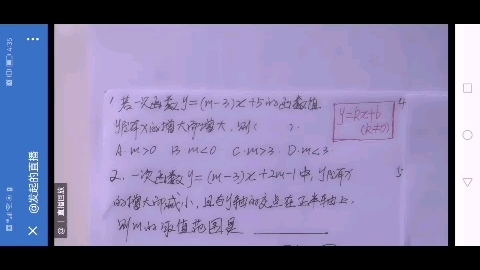 1. 若一次函数y=(m-3)x+5的函数值
y随x的增大而增大,则( ).
A. m>0 B. m<0 C. m>3 D. m<3.
y=kx+b
(k≠0)
2. 一次函数y=(m-3)x+2m-1中,y随x
的增大而减小,且与y轴的交点在正半轴上,
则m的取值范围是
4
5
4:35
@发起的直播
@ | 直播回放